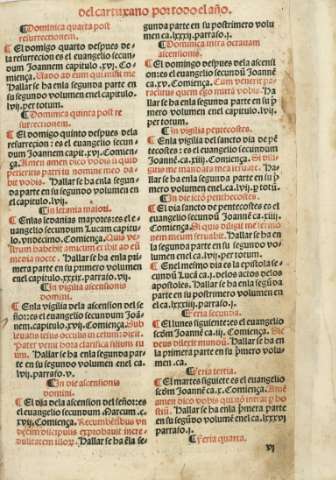 del cartuxano por todo el año.
Dominica quarta post
resurrectionem.
El domigo quarto despues de
la resurrecion es el euangelio secun
dum Joannem capitulo .xvj. Co
miença. Uado ad eum qui misit me
Hallar se ha enla segunda parte
en su segundo volumen enel capitulo.
lvij. per totum.
Dominica quinta post re
surrectionem.
El domingo quinto despues dela
resurrecion: es el euangelio secun
dum Joannem capit .xvj. Comien
ça. Amen amen dico vobis si quid
petieritis patri in nomine meo da
bit vobis. Hallar se ha enla segun
da parte en su segundo volumen en
el capitulo.lvij.
In letania maiori.
Enlas letanias mayores: es el e
uangelio secundum Lucam capitu
lo. vndecimo. Comiença. Quis ve
strum habebit amicum et ibit ad eũ
media nocte. Hallar se ha enla pri
mera parte en su primero volumen
enel capitulo .xxxij. parrafo.vij.
In vigilia ascensionis
domini.
Enla vigilia dela ascension del se
ñor: es el euangelio secundum Joan
nem. capitulo.xvij. Comiença. Sub
leuatis iesus oculis in celum: dixit.
Pater venit hora clarifica filium tu
um. Hallar se ha enla segunda par
te en su segundo volumen enel capi.
lvij. parrafo.v.
In die ascensionis
domini.
El dia dela ascension del señor: es
el euangelio secundum Marcum .c.
xvij. Comiença. Recumbentibus vn
decim discipulis exprobauit incre
dulitatem illorum. Hallar se ha enla se
gunda parte en su postrimero volu
men ca.lxxxij.parrafo.j.
Dominica infra octauam
ascensionis.
El domingo despues dela ascensi
on: es el euangelio secundũ Joannẽ
ca.xv. Comiença. Cum venerit pa
raclitus quem ego mittã vobis.
Hallar se ha enla segunda parte en su
segundo volumen enel ca.lvij.
per totum.
In vigilia pentecostes.
Enla vigilia del sancto dia de pẽ
tecostes: es el euangelio secundũ
Joannẽ ca.xiiij. Comiença. Si dili
gitis me mandata mea seruate. Ha
llar se ha enla segunda parte en su se
gundo volumen enel ca.lvij.p totũ.
In die sctõ penthecostes.
El dia sancto de pentecostes es el
euangelio secundũ Joannẽ ca.xiiij.
Comiença. Si quis diligit me sermo
nem meum seruabit. Hallar se ha en
la segunda parte en su segundo vo
lumen enel ca. lvij. per totum.
En el mesmo dia es la epistola se
cundũ Luca ca.j. delos actos delos
apostoles. Hallar se ha enla segũda
parte en su postrimero volumen en
el ca.lxxxiiij.parrafo.j.
Feria secunda.
El lunes siguiente: es el euangelio
secũdũ Joannẽ .iij. Comiença. Sic
deus dilexit mundũ. Hallar se ha en
la primera parte en su primero volu
men .ca.
Feria tertia.
El martes siguiẽte es el euangelio
secũdũ Joannẽ ca.x. Comiença. Amẽ
amen dico vobis qui nõ intrat per
hostium. Hallar se ha enla primera parte
en su segundo volumen enel ca.lxxxvj
parrafo.j.
Feria quarta.
vj